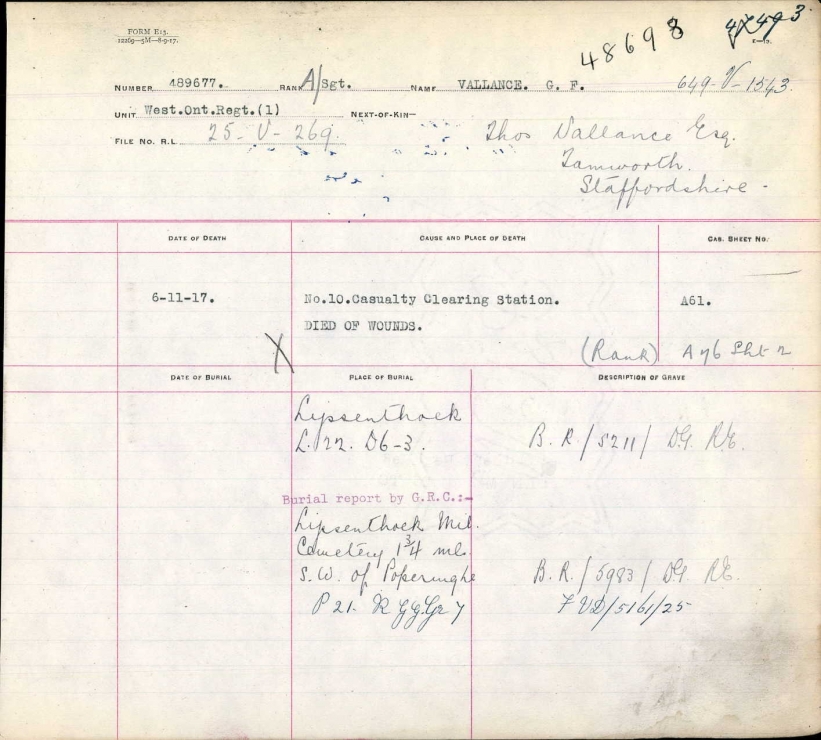 FORM E13.
12269—5M—8-9-17.
48698
649-V-1543.
NUMBER 489677. RANK A/Sgt. NAME VALLANCE. G. F.
UNIT West.Ont.Regt.(1) NEXT-OF-KIN—
FILE NO. R.L. 25-V-269.
Thos Vallance Esq.
Tamworth.
Staffordshire.
DATE OF DEATH CAUSE AND PLACE OF DEATH CAS. SHEET NO.
6-11-17. No.10.Casualty Clearing Station. A61.
DIED OF WOUNDS.
X (Rank) A76 Sht 2
DATE OF BURIAL PLACE OF BURIAL DESCRIPTION OF GRAVE
Lijssenthoek
L.22. D6-3. B.R./5211/ DG RE.
Burial report by G.R.C.:-
Lijssenthoek Mil.
Cemetery 1 3/4 mls.
S.W. of Poperinghe B.R./5983/ DG RE.
P 21. Gr 7 FVD/5161/25